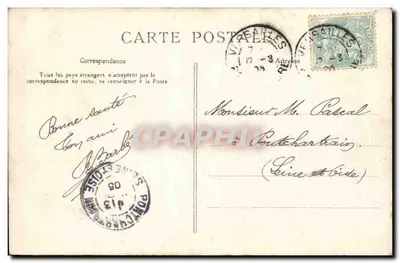 CARTE POSTALE
Correspondance
Adresse
Tous les pays étrangers n'acceptent pas la
correspondance au recto, se renseigner à la Poste
VERSAILLES
VERSAILLES
Bonne santé
Ton ami
Barbé
Monsieur M. Pascal
à Pontchartrain
(Seine et Oise)
PONTCHARTRAIN
13
05
SEINE ET OISE